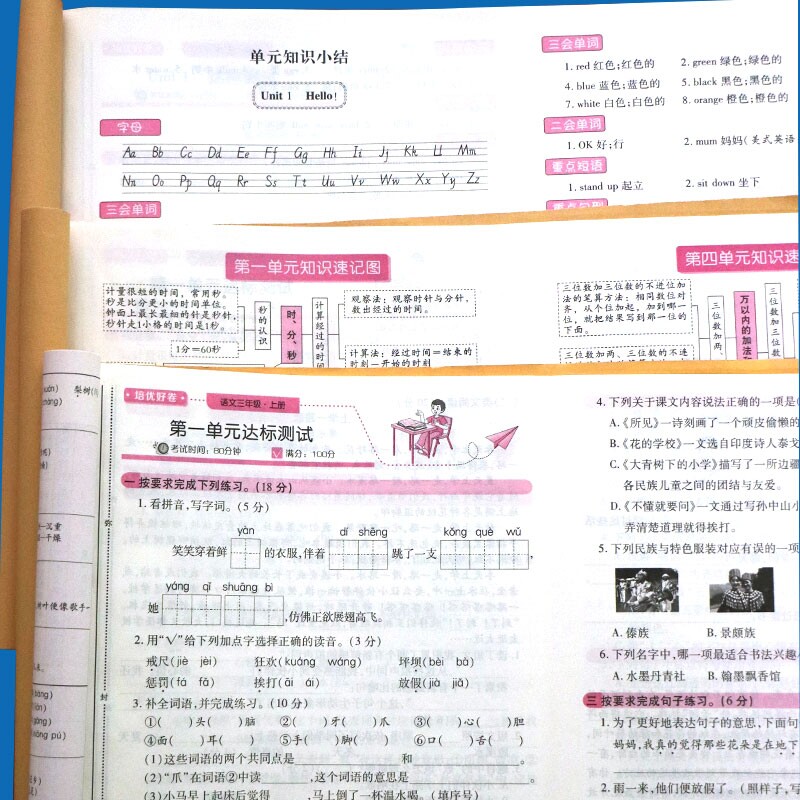 单元知识小结
Unit 1 Hello!
字母
Aa Bb Cc Dd Ee Ff Gg Hh Ii Jj Kk Ll Mm
Nn Oo Pp Qq Rr Ss Tt Uu Vv Ww Xx Yy Zz
三会单词
三会单词
1. red 红色;红色的 2. green 绿色;绿色的
4. blue 蓝色;蓝色的 5. black 黑色;黑色的
7. white 白色;白色的 8. orange 橙色;橙色的
二会单词
1. OK 好;行 2. mum 妈妈(美式英语
重点短语
1. stand up 起立 2. sit down 坐下
重点句型
第一单元知识速记图
计量很短的时间，常用秒。
秒是比分更小的时间单位，
钟面上最长最细的针是秒针，
秒针走1小格的时间是1秒。
1分=60秒
秒的认识
时、分、秒
计算经过的时间
观察法：观察时针与分针，
数出经过的时间。
计算法：经过时间=结束的
时刻-开始的时刻
第四单元知识速记图
三位数加三位数的不进位加
法的笔算方法：相同数位对
齐，从个位加起，加到哪一
位，就把结果写到那一位的
下面。
三位数加两、三位数的不连
三位数加两、
万以内的加法和
三位数加三位数
培优好卷
语文三年级·上册
第一单元达标测试
考试时间：80分钟 满分：100分
一 按要求完成下列练习。(18分)
1. 看拼音,写字词。(5分)
yàn dí shēng kǒng què wǔ
笑笑穿着鲜 的衣服,伴着 跳了一支 ,
yáng qǐ shuāng bì
她 ,仿佛正欲展翅高飞。
2. 用“√”给下列加点字选择正确的读音。(3分)
戒尺(jiè jèi) 狂欢(kuáng wáng) 坪坝(bèi bà)
惩罚(fá fǎ) 挨打(āi ái) 放假(jià jiǎ)
3. 补全词语,并完成练习。(10分)
①( )头( )脑 ②( )牙( )爪 ③( )心( )胆
④面( )耳( ) ⑤手( )脚( ) ⑥口( )舌( )
(1)这些词语的两个共同点是 和 。
(2)“爪”在词语②中读 ,这个词语的意思是 。
(3)小马早上起床后觉得 ,马上倒了一杯温水喝。(填序号)
4. 下列关于课文内容说法正确的一项是(
A.《所见》一诗刻画了一个顽皮偷懒的
B.《花的学校》一文选自印度诗人泰戈
C.《大青树下的小学》描写了一所边疆
各民族儿童之间的团结与友爱。
D.《不懂就要问》一文通过写孙中山小
弄清楚道理就得挨打。
5. 下列民族与特色服装对应有误的一项
A. 傣族 B. 景颇族
6. 下列名字中,哪一项最适合书法兴趣小
A. 水墨丹青社 B. 翰墨飘香馆
三 按要求完成句子练习。(6分)
1. 为了更好地表达句子的意思,下面句
妈妈,我真的觉得那些花朵是在地下
2. 雨一来,他们便放假了。(照样子,写
弥
封
梨树(
树叶便像歌手